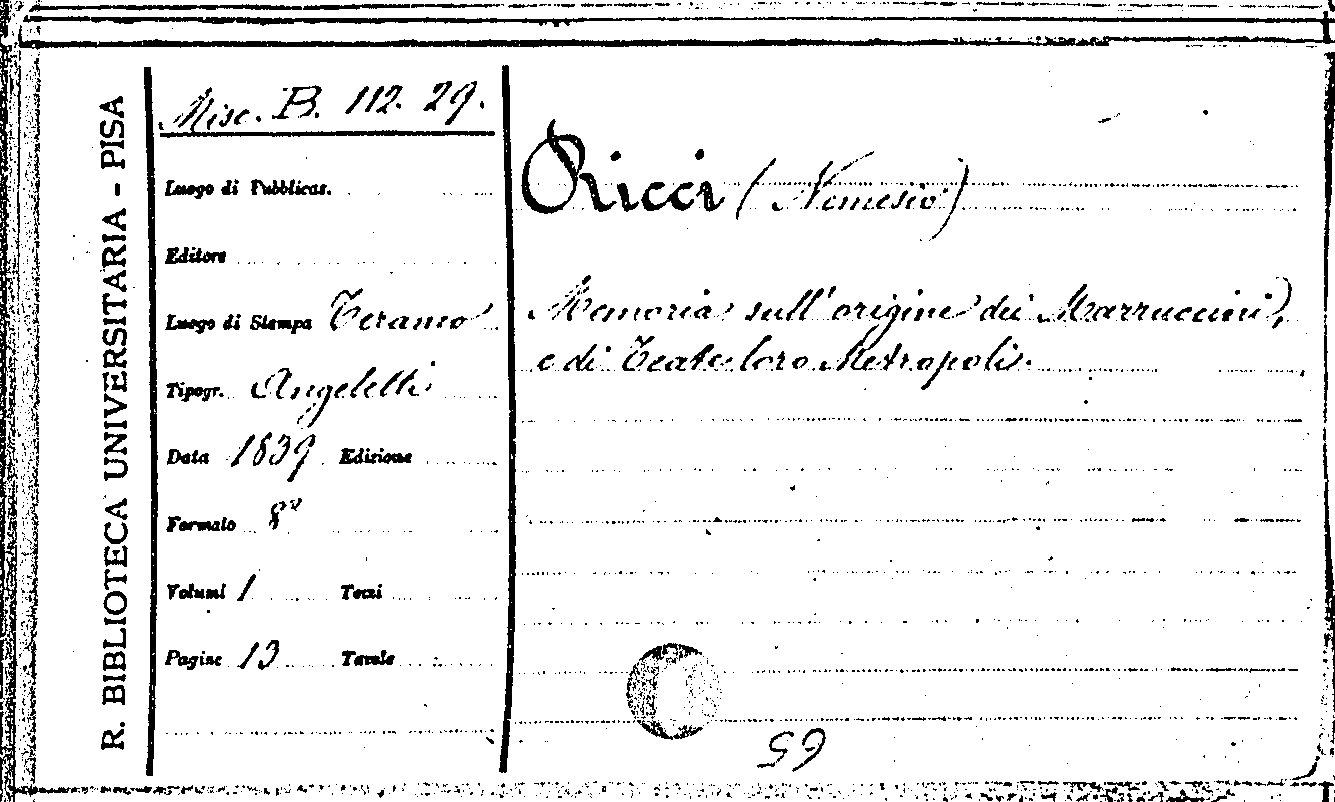 R. BIBLIOTECA UNIVERSITARIA - PISA
Misc. B. 112. 29.
Luogo di Pubblicaz.
Editore
Luogo di Stampa Teramo
Tipogr. Angeletti
Data 1839 Edizione
Formato 8º
Volumi 1 Tomi
Pagine 13 Tavole
Ricci (Nemesio)
Memoria sull'origine dei Marruccini,
e di Teate loro Metropoli.